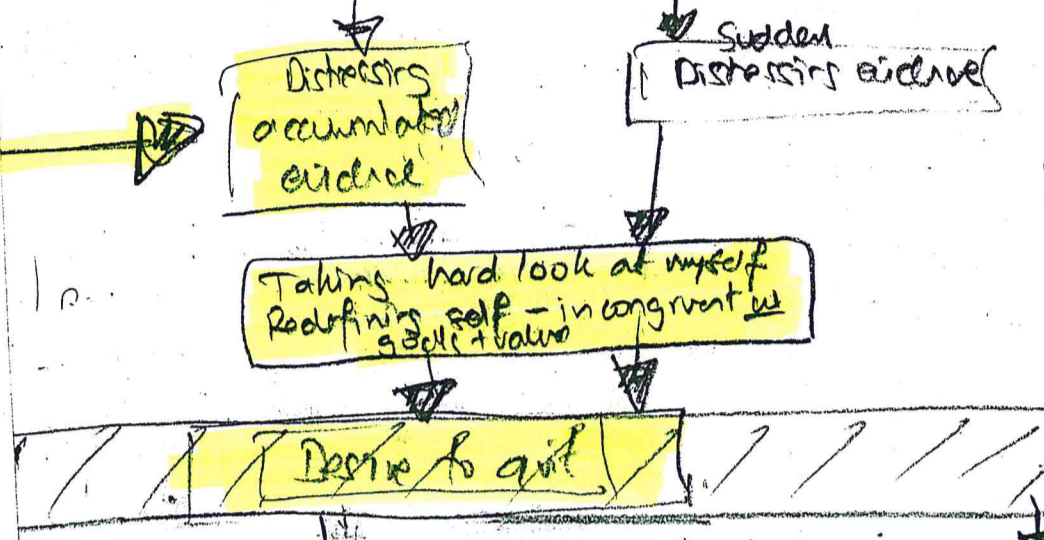 Distressing
accumulated
evidence
Sudden
Distressing evidence
Taking hard look at myself
Redefining self - incongruent w
goals + values
Desire to quit